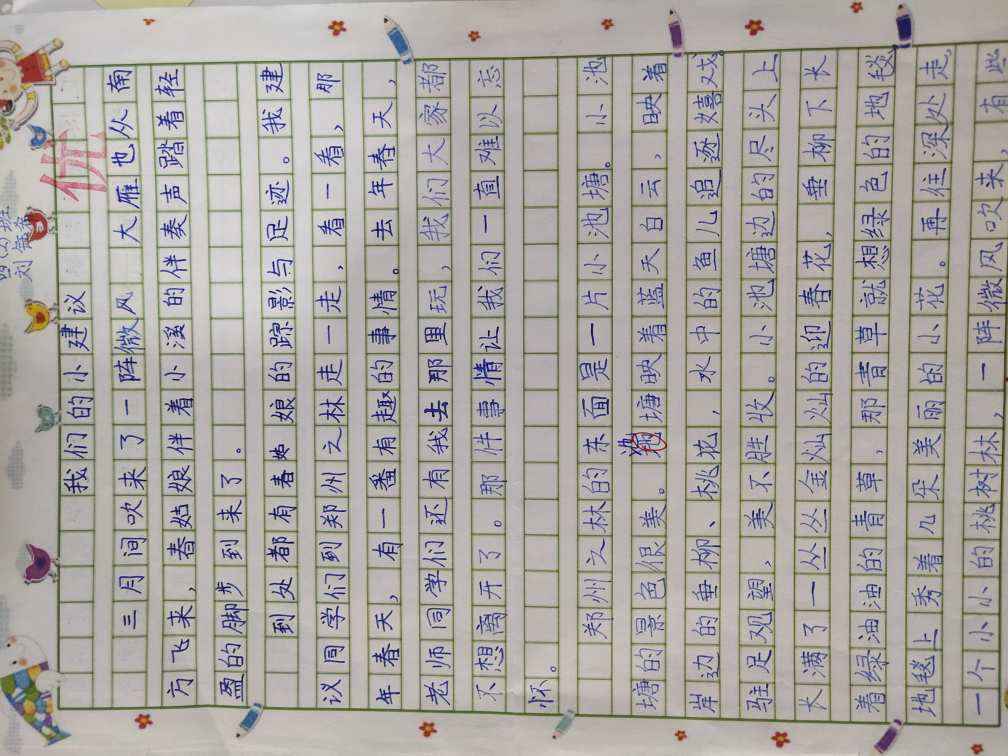 四(2)班
刘
优
我们的小建议
三月间吹来了一阵微风，大雁也从南
方飞来，春姑娘伴着小溪的伴奏声踏着轻
盈的脚步到来了。
到处都有春姑娘的踪影与足迹。我建
议同学们到郑州之林走一走，看一看，那
年春天，有一番有趣的事情。去年春天，
老师同学们还有我去那里玩，我们大家都
不想离开了。那件事情让我们一直难以忘
怀。
郑州之林的东面是一片小池塘。小池
塘的景色很美。池塘映着蓝天白云，映着
岸边的垂柳、桃花，水中的鱼儿追逐嬉戏。
驻足观望，美不胜收。小池塘边的尽头上
长满了一丛丛金灿灿的迎春花，垂柳下长
着绿油油的青草，那青草就想绿色的地毯，
地毯上秀着几朵美丽的小花。再往深处走，
一个小小的桃树林，一阵微风吹来，有些